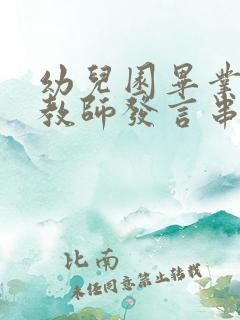 幼兒園畢業
教師發言串
比南
未經同意禁止轉載